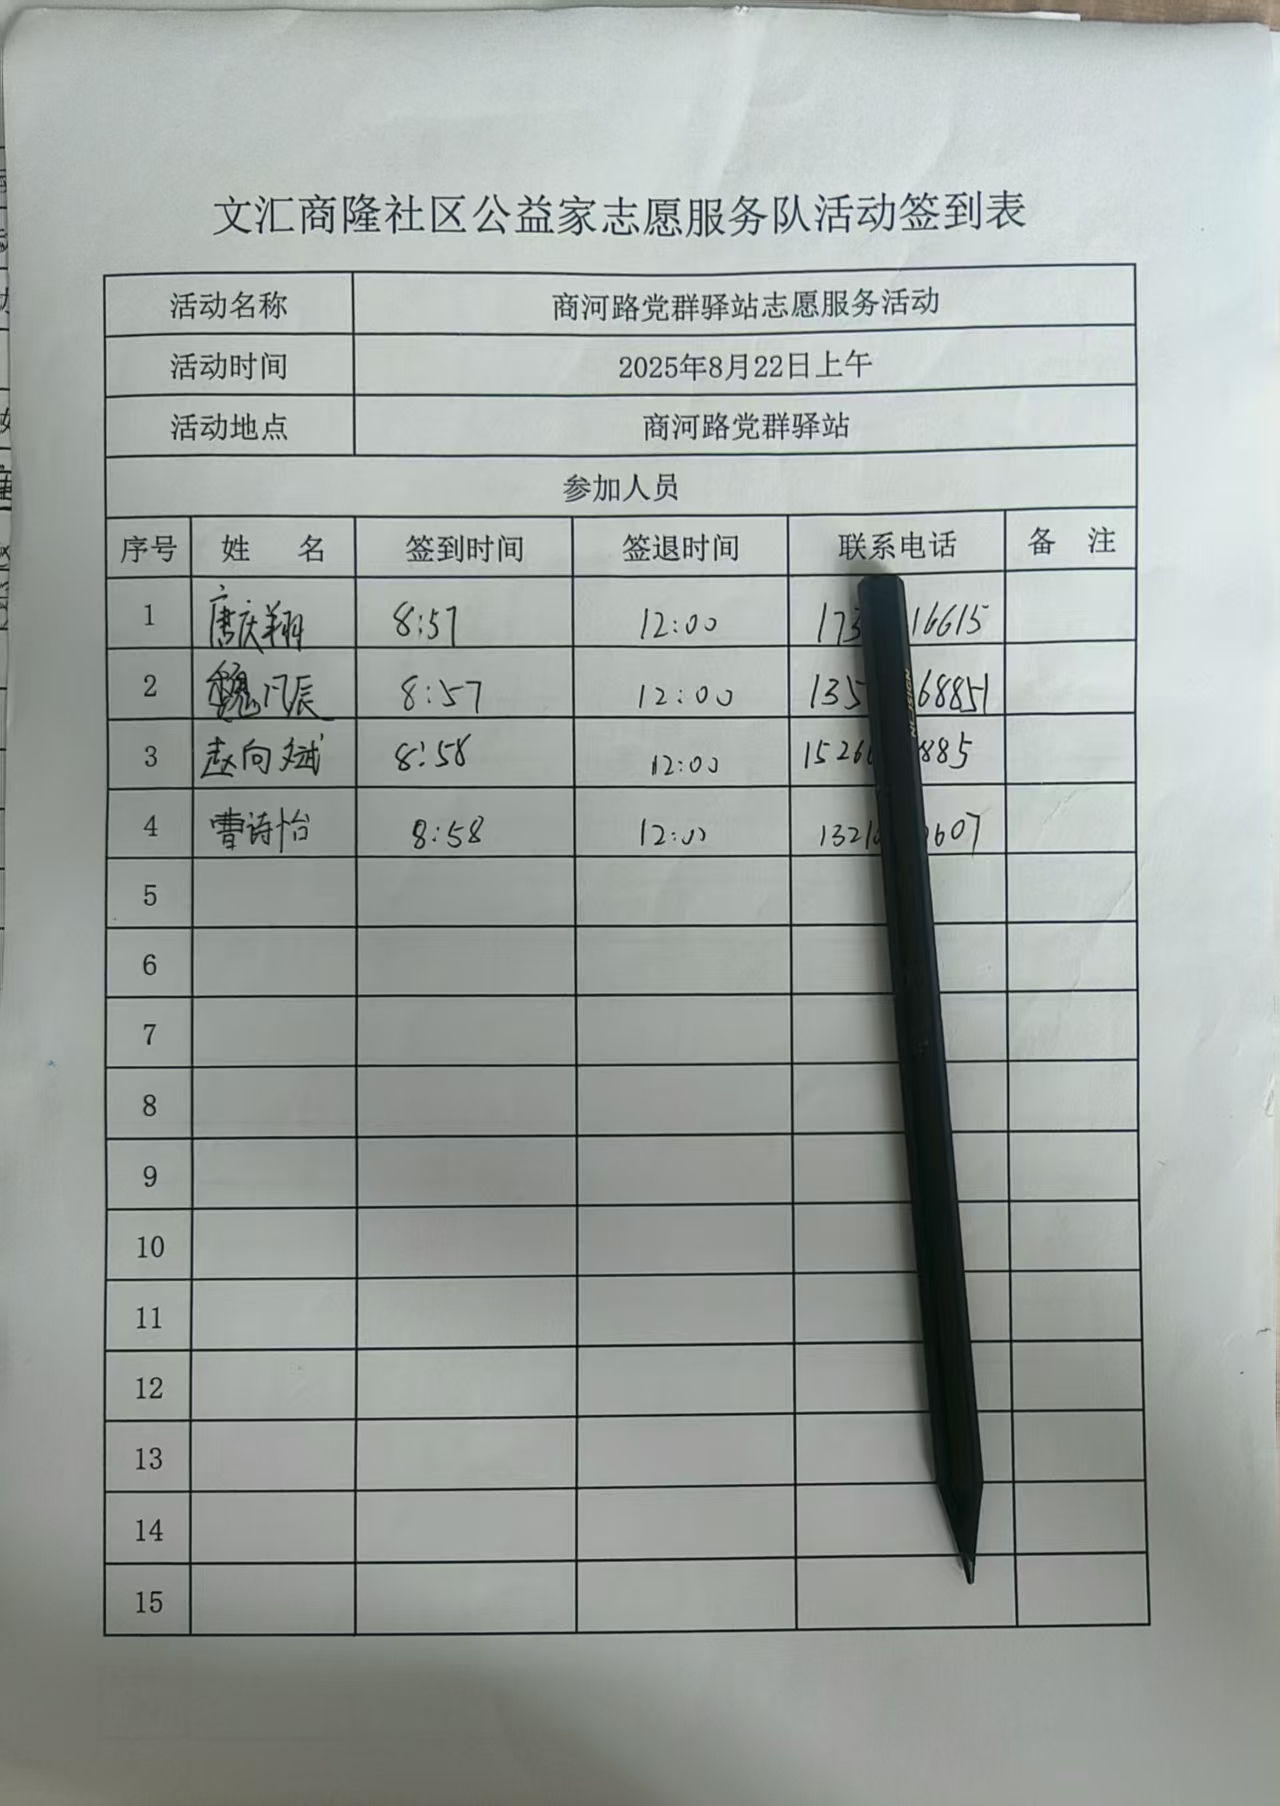 文汇商隆社区公益家志愿服务队活动签到表
活动名称 商河路党群驿站志愿服务活动
活动时间 2025年8月22日上午
活动地点 商河路党群驿站
参加人员
序号 姓 名 签到时间 签退时间 联系电话 备 注
1 唐庆翔 8:57 12:00 173 16615
2 魏凡辰 8:57 12:00 135 68851
3 赵向斌 8:58 12:00 1526 885
4 曹诗怡 8:58 12:00 1321 607
5
6
7
8
9
10
11
12
13
14
15